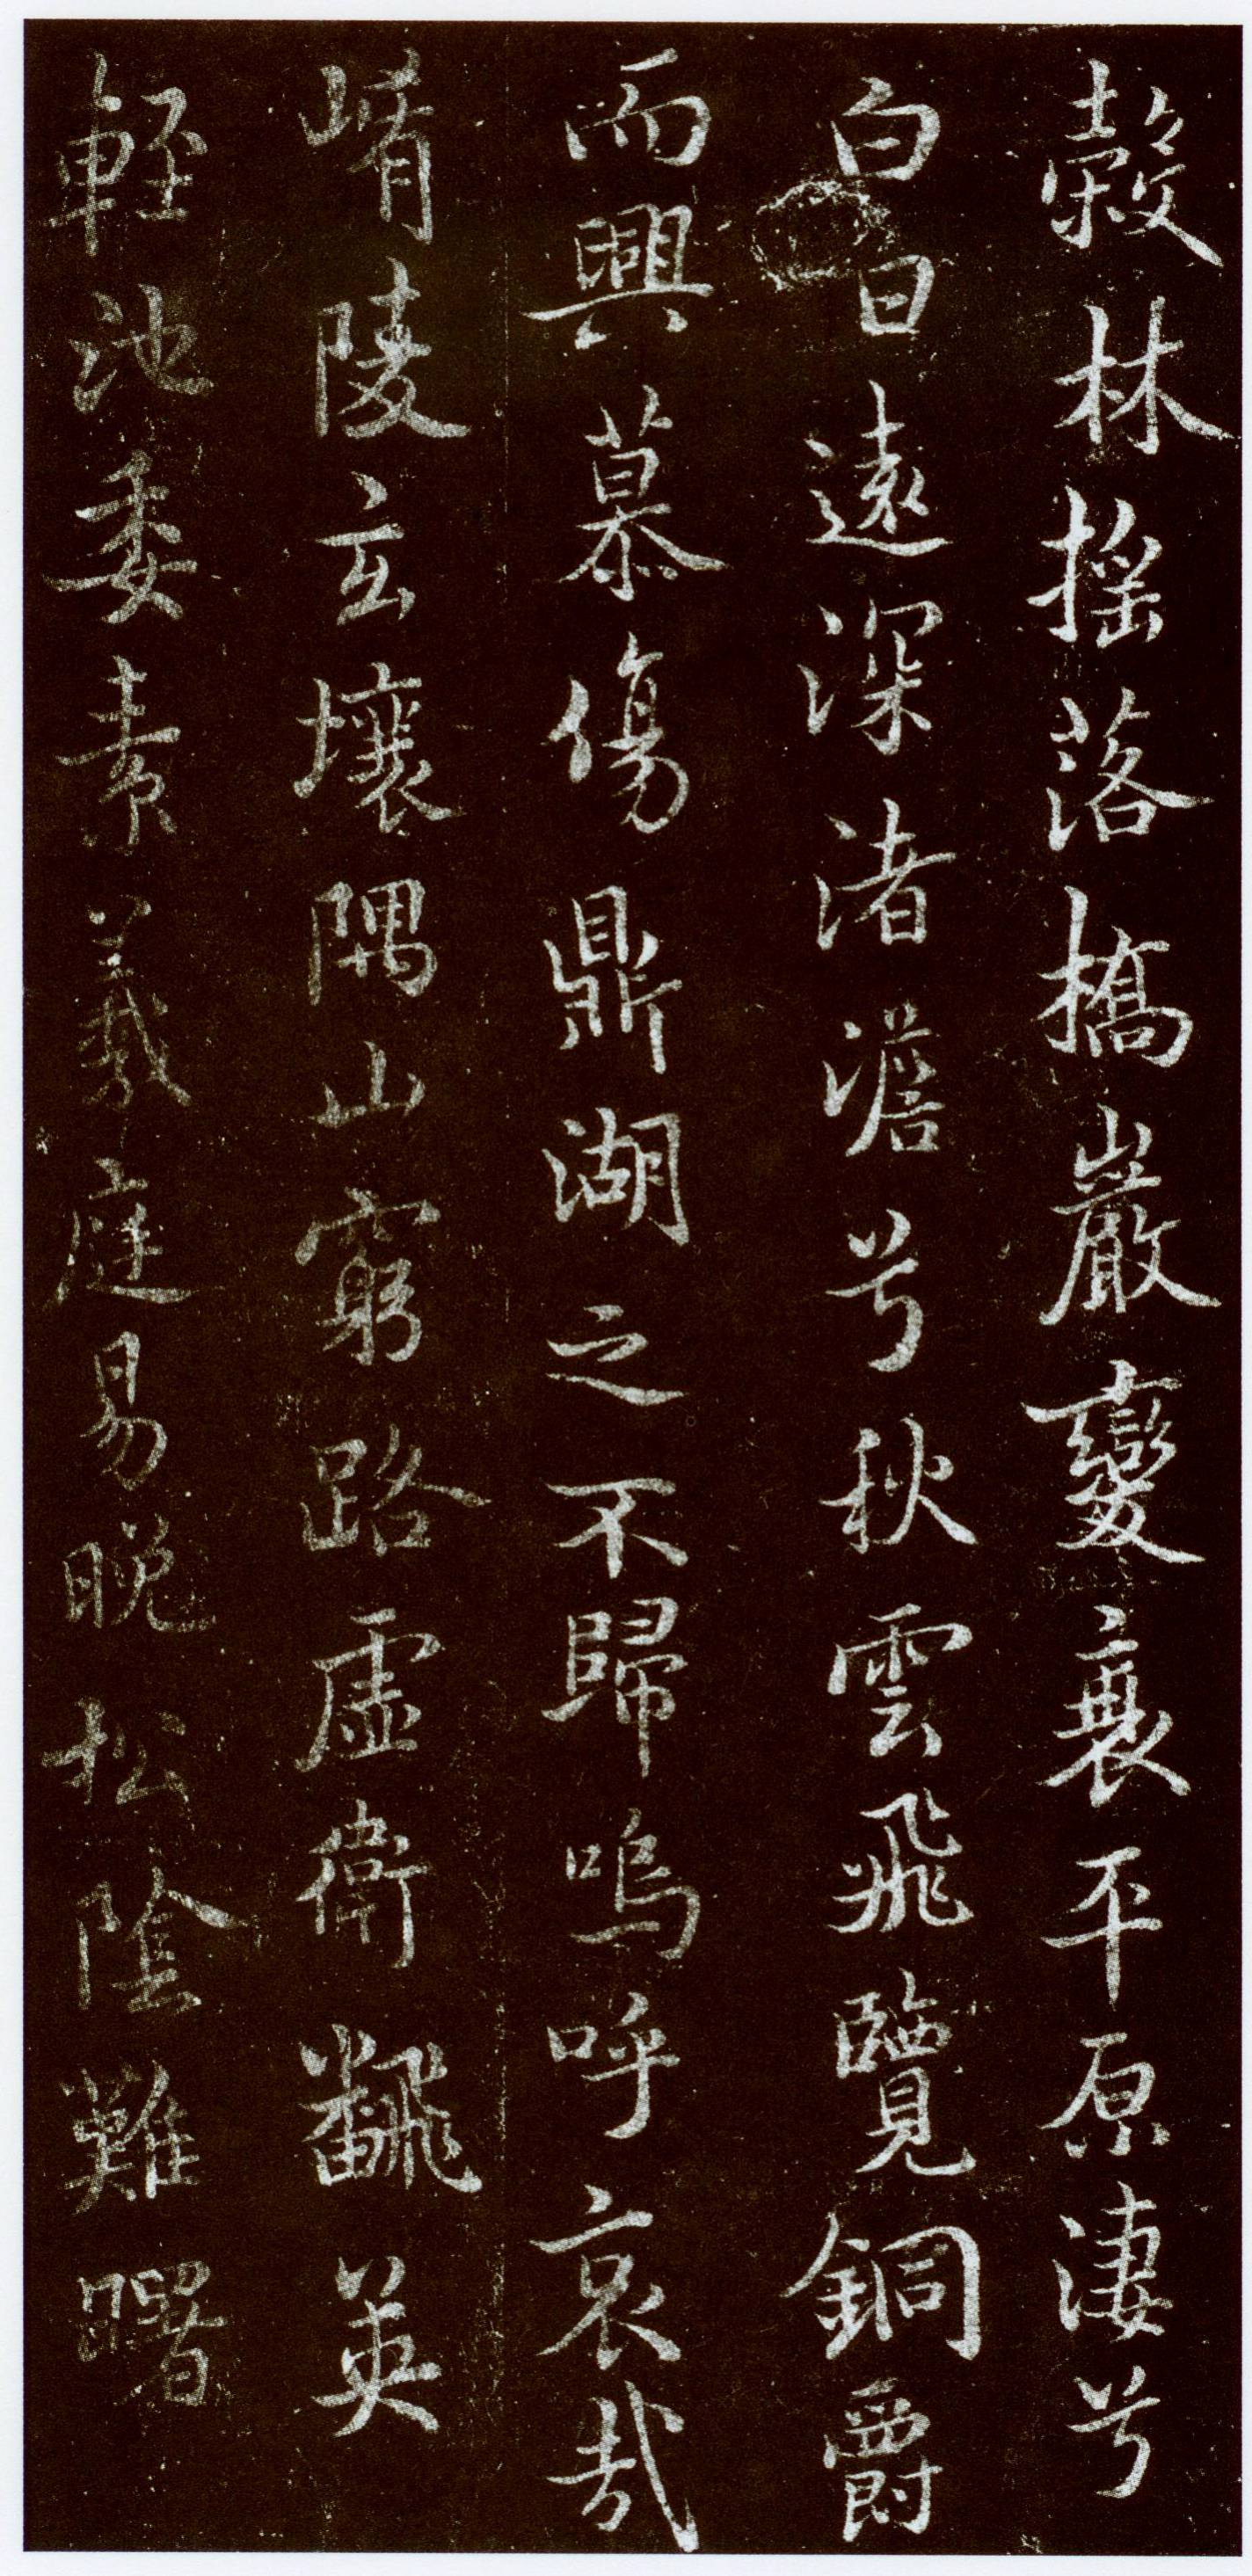 穀林搖落橋巖變衰平原淒兮
白日遠深渚澹兮秋雲飛覽銅爵
而興慕傷鼎湖之不歸嗚呼哀哉
崤陵玄壤隅山窮路虛衛飜英
輊池委素羲庭易晚松陰難曙